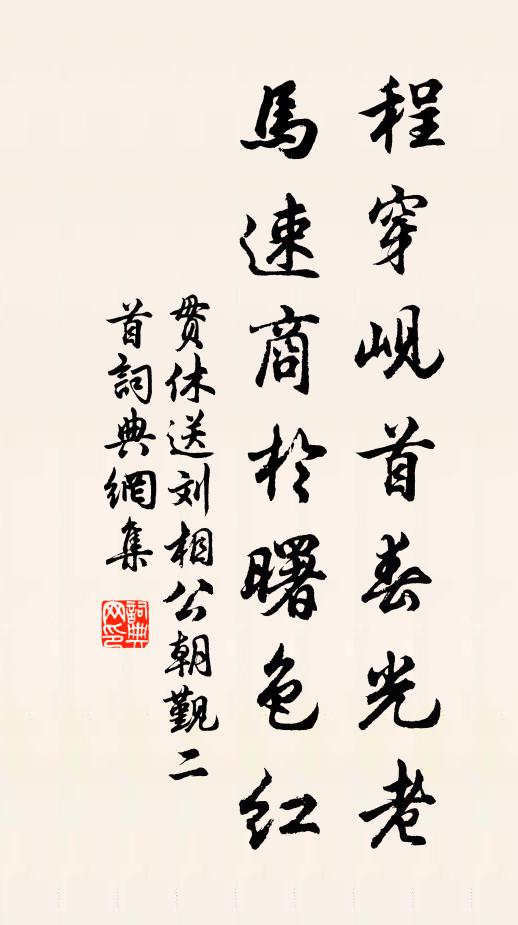 程穿峴首春光老
馬速商於曙色紅
贯休送刘相公朝觐二
首詞典網集
詞典
网印